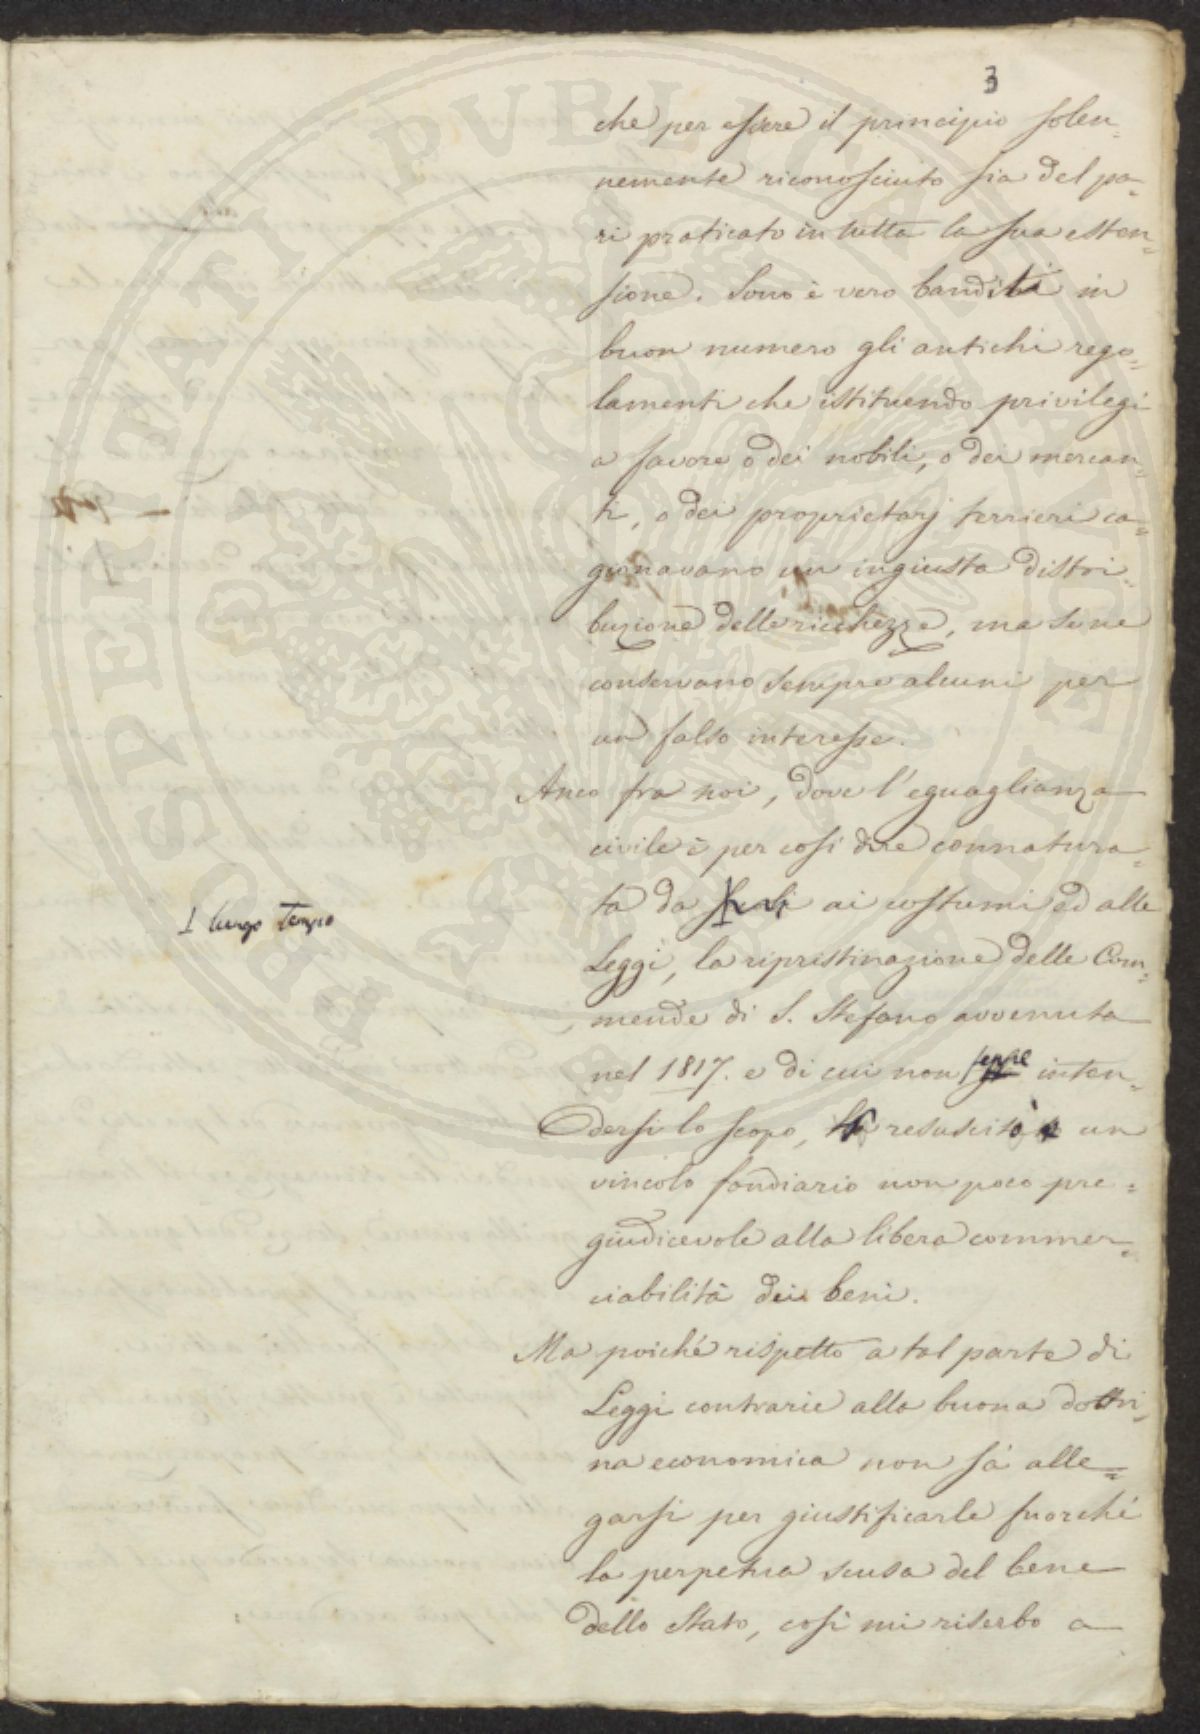 3
che per essere il principio solen=
nemente riconosciuto sia del pa=
ri praticato in tutta la sua esten=
sione. Sono è vero banditi in
buon numero gli antichi rego=
lamenti che istituendo privilegi
a favore o dei nobili, o dei mercan=
ti, o dei proprietarj terrieri ca=
gionavano un ingiusta distri=
buzione delle ricchezze, ma se ne
conservano sempre alcuni per
un falso interesse.
Anco fra noi, dove l'eguaglianza
civile è per così dire connatura=
ta da ai costumi ed alle
I lungo tempo
Leggi, la ripristinazione delle Com=
mende di S. Stefano avvenuta
nel 1817. e di cui non seppe inten=
dersi lo scopo, resuscitò un
vincolo fondiario non poco pre=
giudicevole alla libera commer=
ciabilità dei beni.
Ma poiché rispetto a tal parte di
Leggi contrarie alla buona dottri=
na economica non sà alle=
garsi per giustificarle fuorché
la perpetua scusa del bene
dello Stato, così mi riserbo a
PROSPERITATI PVBLICAE AVGENDAE